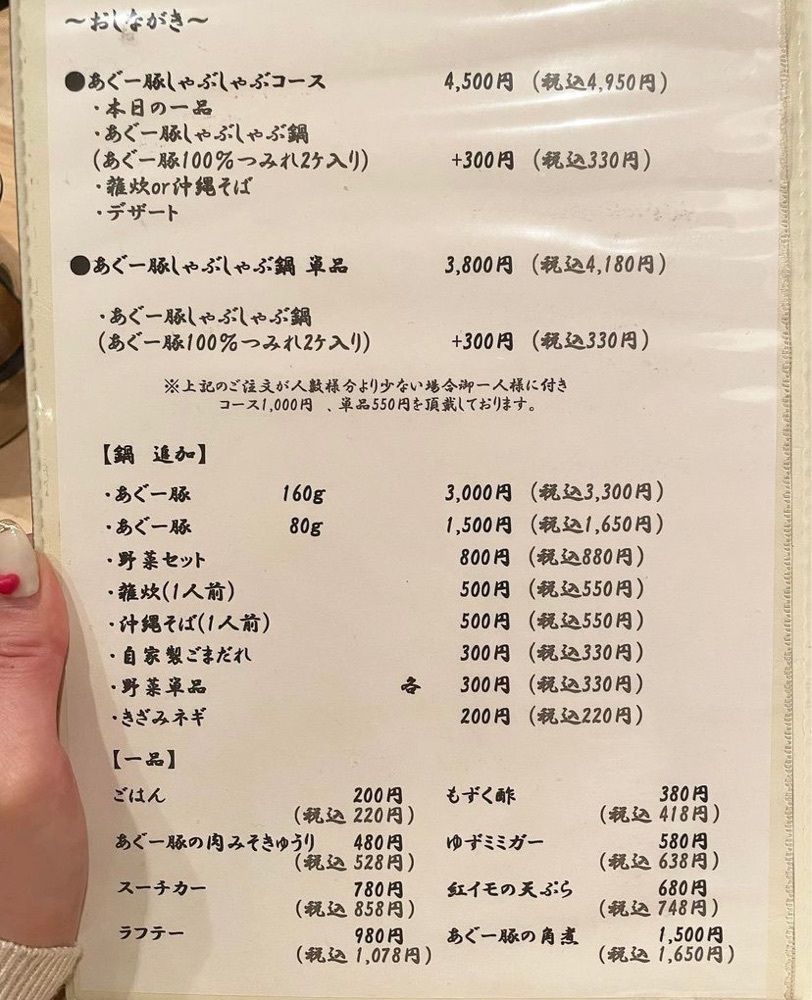 ～おしながき～
●あぐー豚しゃぶしゃぶコース 4,500円 (税込4,950円)
・本日の一品
・あぐー豚しゃぶしゃぶ鍋
(あぐー豚100%つみれ2ケ入り) +300円 (税込330円)
・雑炊or沖縄そば
・デザート
●あぐー豚しゃぶしゃぶ鍋 単品 3,800円 (税込4,180円)
・あぐー豚しゃぶしゃぶ鍋
(あぐー豚100%つみれ2ケ入り) +300円 (税込330円)
※上記のご注文が人数様分より少ない場合御一人様に付き
コース1,000円 、単品550円を頂戴しております。
【鍋 追加】
・あぐー豚 160g 3,000円 (税込3,300円)
・あぐー豚 80g 1,500円 (税込1,650円)
・野菜セット 800円 (税込880円)
・雑炊(1人前) 500円 (税込550円)
・沖縄そば(1人前) 500円 (税込550円)
・自家製ごまだれ 300円 (税込330円)
・野菜単品 各 300円 (税込330円)
・きざみネギ 200円 (税込220円)
【一品】
ごはん 200円 もずく酢 380円
(税込 220円) (税込 418円)
あぐー豚の肉みそきゅうり 480円 ゆずミミガー 580円
(税込 528円) (税込 638円)
スーチカー 780円 紅イモの天ぷら 680円
(税込 858円) (税込 748円)
ラフテー 980円 あぐー豚の角煮 1,500円
(税込 1,078円) (税込 1,650円)